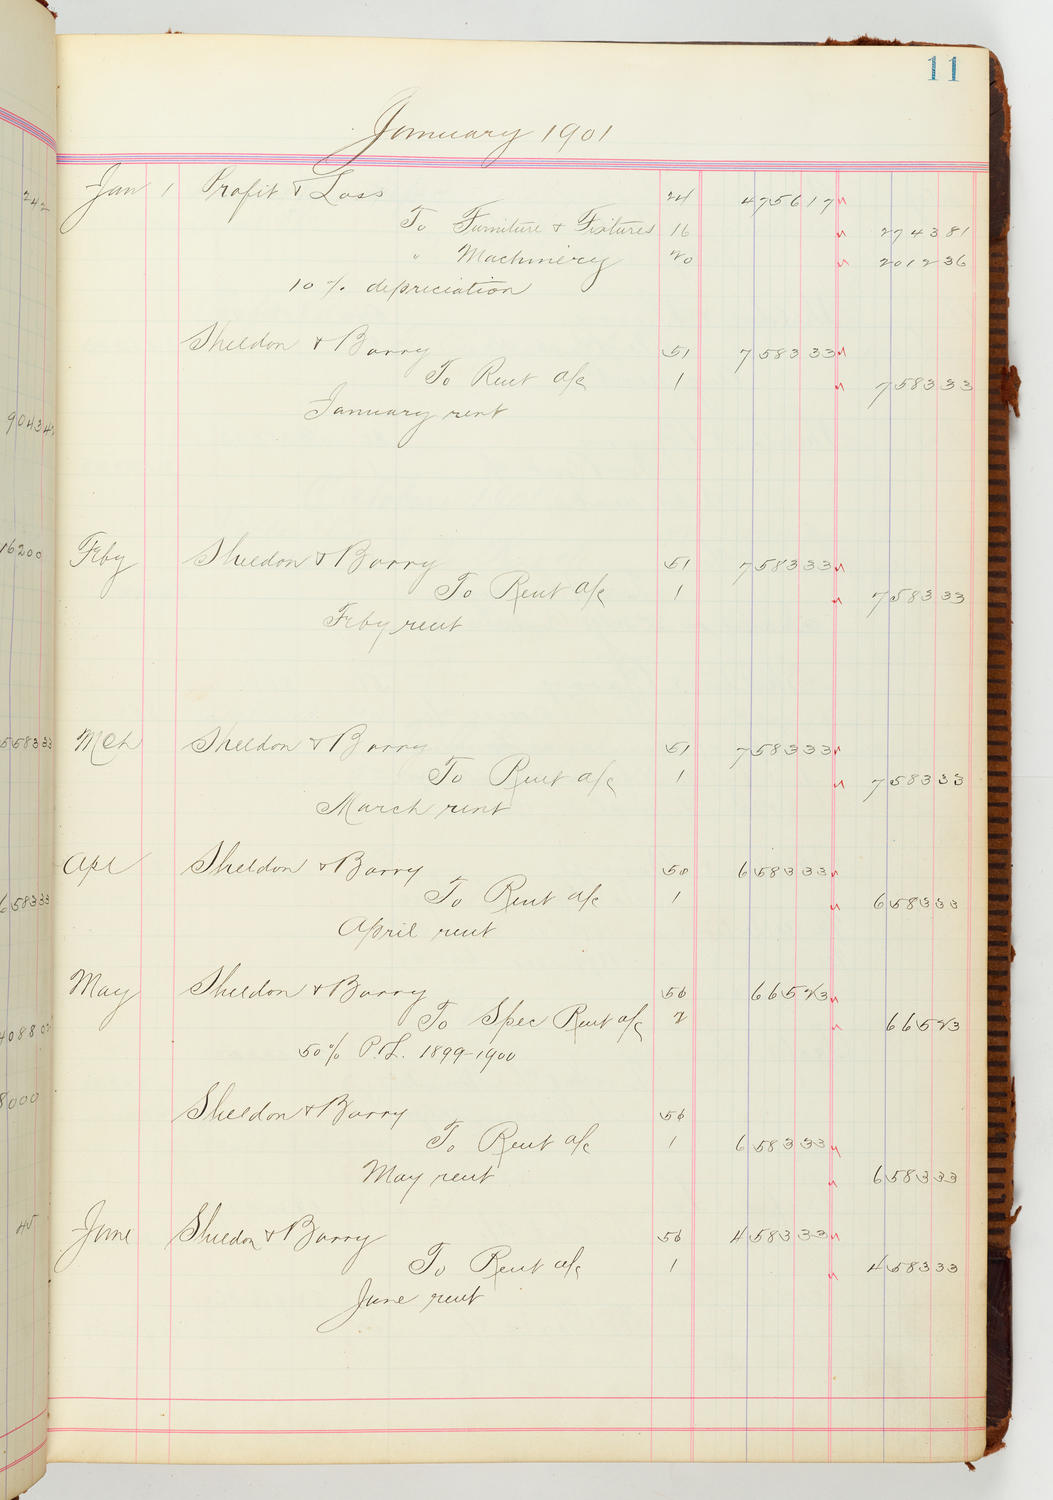 11
January 1901
Jan 1 Profit & Loss 24 4756 17
To Furniture & Fixtures 16 2743 81
" Machinery 20 2012 36
10 % depreciation
Sheldon & Barry 51 7583 33
To Rent a/c 1 7583 33
January rent
Feby Sheldon & Barry 51 7583 33
To Rent a/c 1 7583 33
Feby rent
Mch Sheldon & Barry 51 7583 33
To Rent a/c 1 7583 33
March rent
Apl Sheldon & Barry 50 6583 33
To Rent a/c 1 6583 33
April rent
May Sheldon & Barry 56 665 23
To Spec Rent a/c 2 665 23
50% P.L. 1899-1900
Sheldon & Barry 56
To Rent a/c 1 6583 33
May rent 6583 33
June Sheldon & Barry 56 4583 33
To Rent a/c 1 4583 33
June rent
242
9043
16200
558333
658333
4088
8000
45